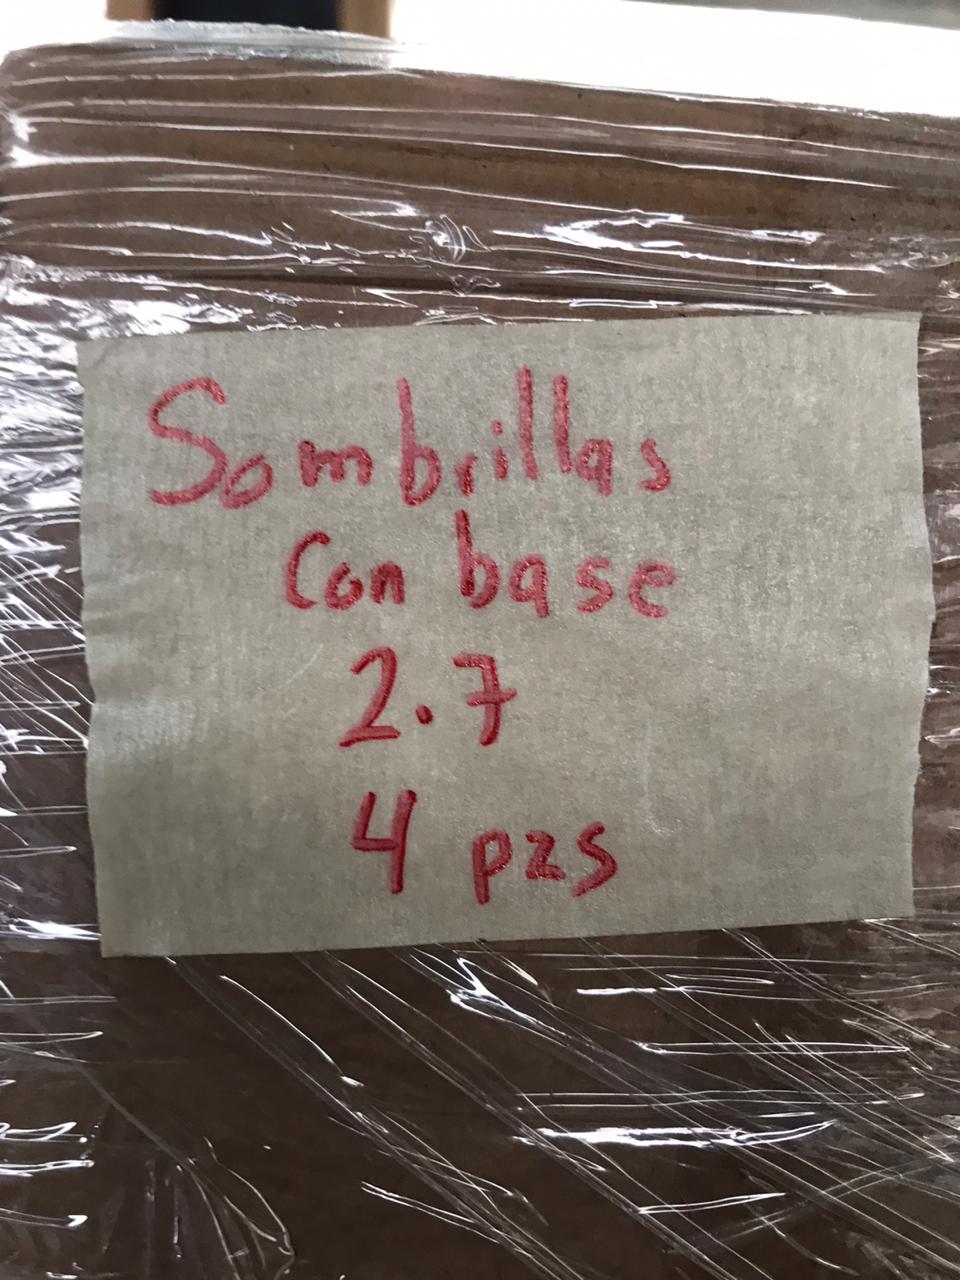 Sombrillas
Con base
2.7
4 pzs